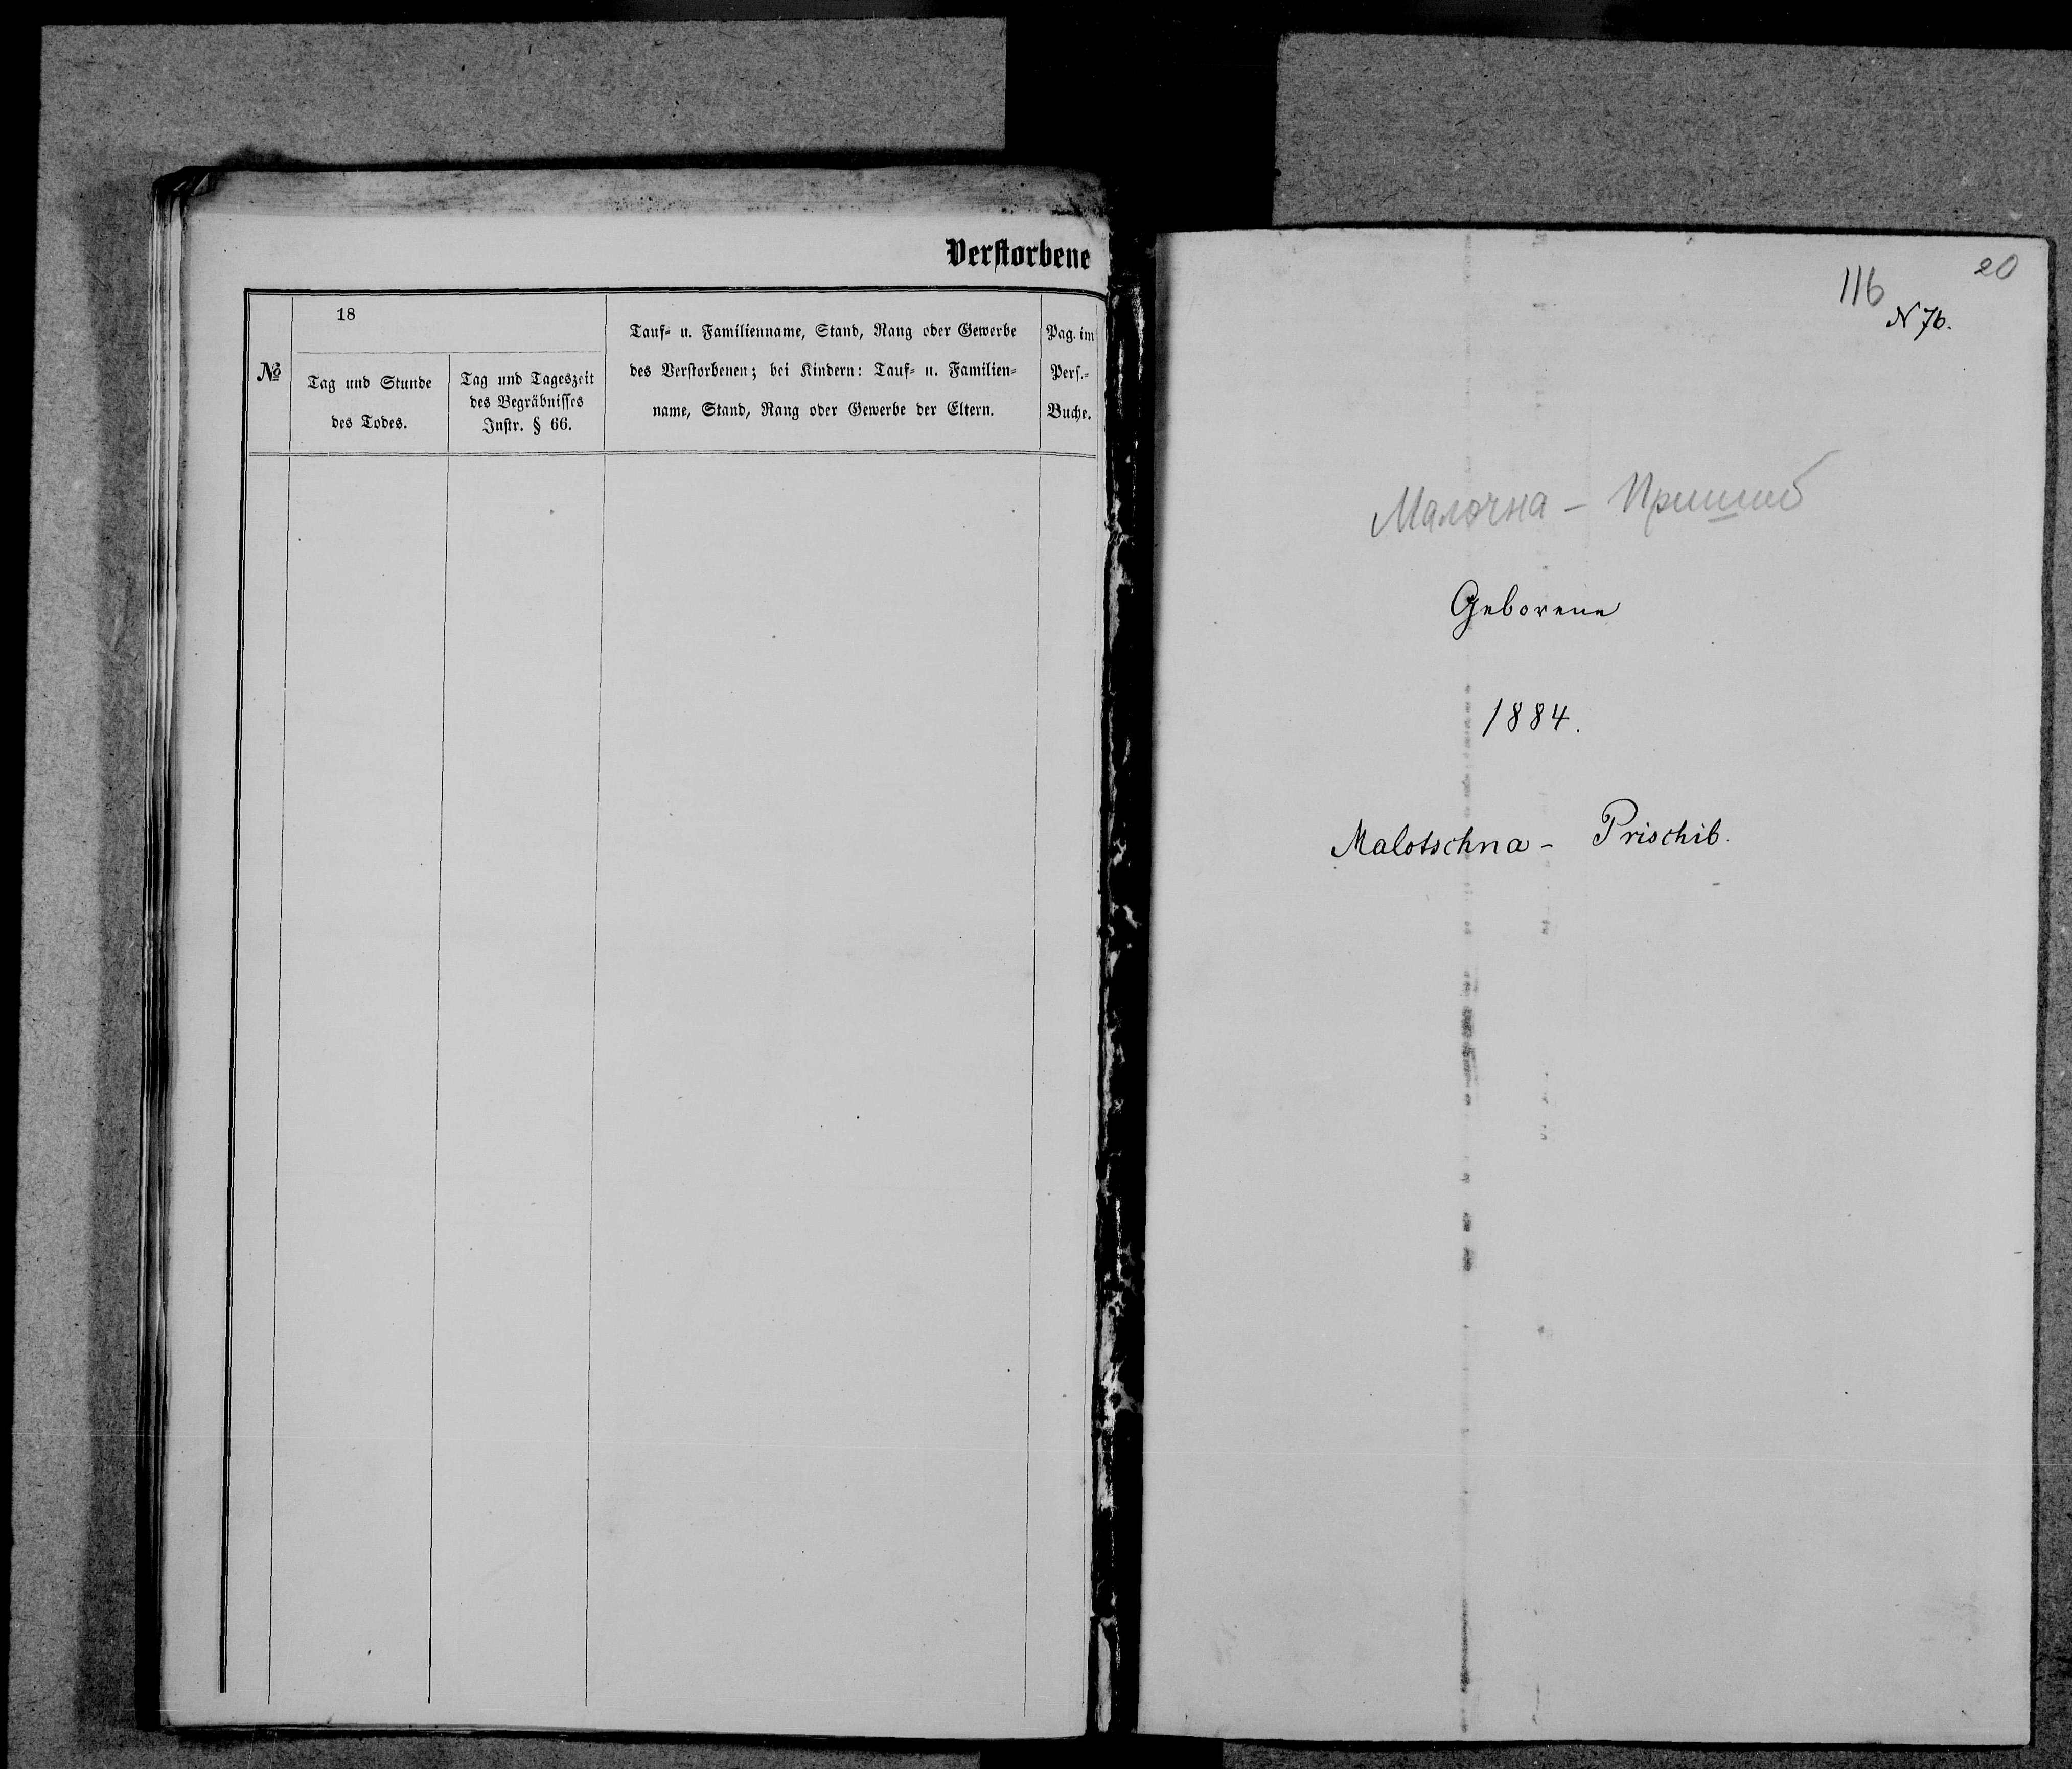 Verstorbene
№
18
Tag und Stunde
des Todes.
Tag und Tageszeit
des Begräbnisses
Instr. § 66.
Tauf- u. Familienname, Stand, Rang oder Gewerbe
des Verstorbenen; bei Kindern: Tauf- u. Familien-
name, Stand, Rang oder Gewerbe der Eltern.
Pag. im
Pers.-
Buche.
20
116
N 76.
Малочна - Пришиб
Geborene
1884.
Malotschna - Prischib.